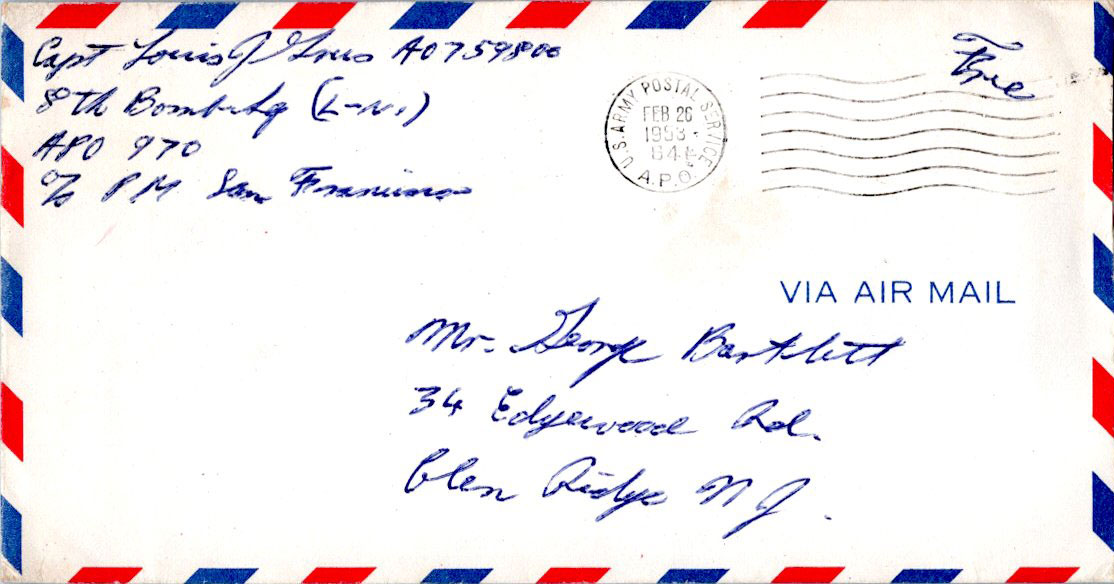 Capt Louis J Ives AO759800
8th Bomb Sq (L-NI)
APO 970
c/o P M San Francisco
Free
U.S. ARMY POSTAL SERVICE
FEB 26
1953
A.P.O.
VIA AIR MAIL
Mr. George Bartlett
34 Edgewood Rd.
Glen Ridge N J.